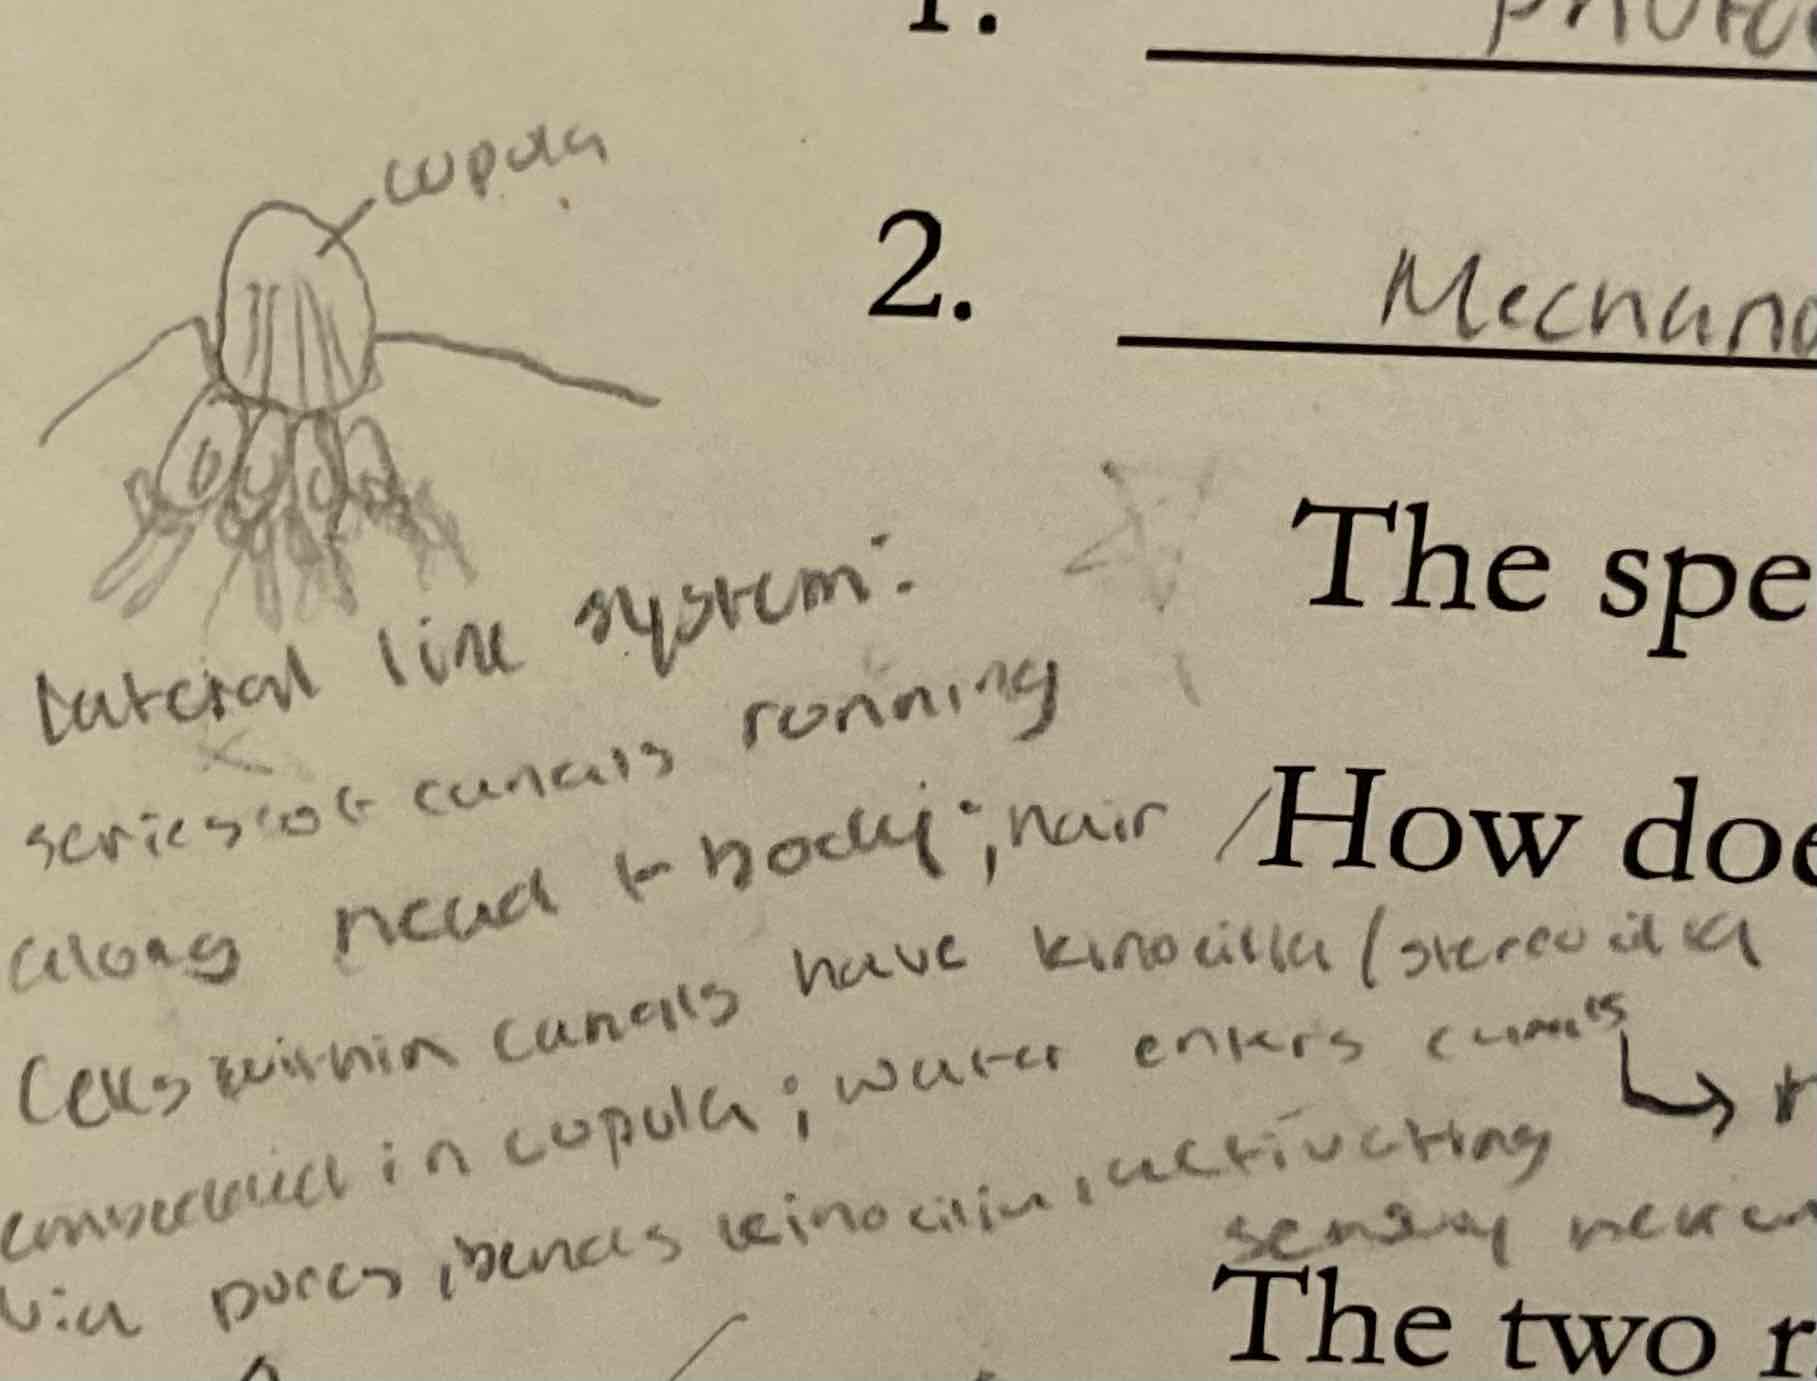 1.
cupula
2. Mechano
The spe
Lateral line system:
series of canals running
How doe
along head + body; hair
cells within canals have kinocilia/stereocilia
embedded in cupula; water enters canals
via pores, bends kinocilium, activating
sensory
The two